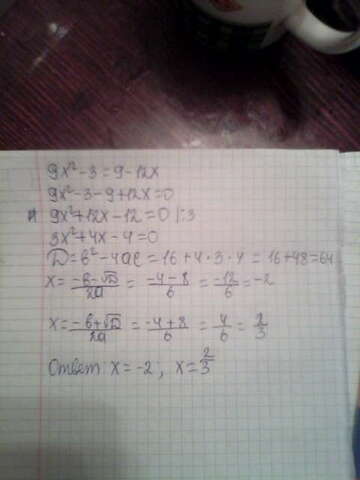 9x²-3=9-12x
9x²-3-9+12x=0
9x²+12x-12=0 |:3
3x²+4x-4=0
D=b²-4ac=16+4·3·4=16+48=64
x=(-b-√D)/2a=(-4-8)/6=-12/6=-2
x=(-b+√D)/2a=(-4+8)/6=4/6=2/3
Ответ: x=-2; x=2/3